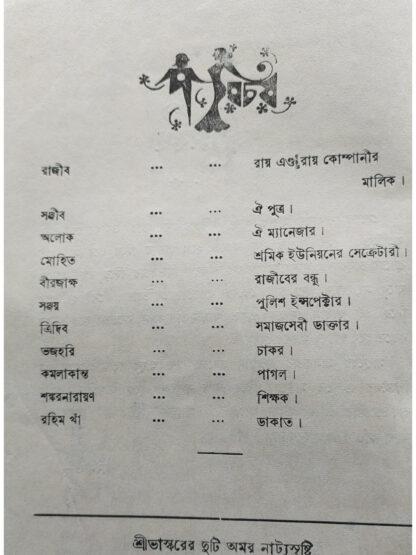 পরিচয়
রাজীব ... ... রায় এণ্ড রায় কোম্পানীর
মালিক।
সঞ্জীব ... ... ঐ পুত্র।
অলোক ... ... ঐ ম্যানেজার।
মোহিত ... ... শ্রমিক ইউনিয়নের সেক্রেটারী।
বীরজাক্ষ ... ... রাজীবের বন্ধু।
সঞ্জয় ... ... পুলিশ ইন্সপেক্টার।
ত্রিদিব ... ... সমাজসেবী ডাক্তার।
ভজহরি ... ... চাকর।
কমলাকান্ত ... ... পাগল।
শঙ্করনারায়ণ ... ... শিক্ষক।
রহিম খাঁ ... ... ডাকাত।
শ্রীভাস্করের দুটি অমর নাট্যসৃষ্টি